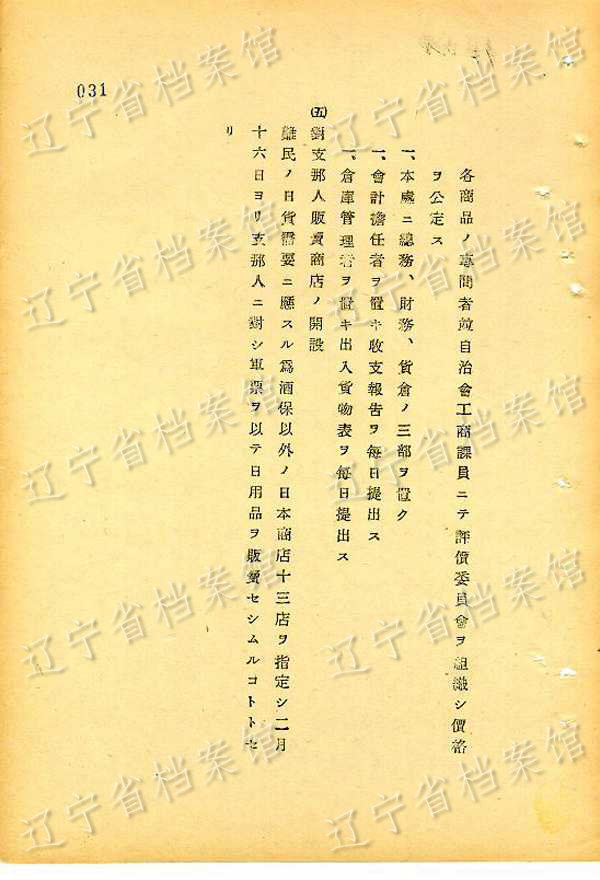 各商品ノ專門者竝自治會工商課員ニテ評價委員會ヲ組織シ價格
ヲ公定ス
一、本處ニ總務、財務、貨倉ノ三部ヲ置ク
一、會計擔任者ヲ置キ收支報告ヲ每日提出ス
一、倉庫管理者ヲ置キ出入貨物表ヲ每日提出ス
(五)對支那人販賣商店ノ開設
難民ノ日貨需要ニ應スル爲酒保以外ノ日本商店十三店ヲ指定シ二月
十六日ヨリ支那人ニ對シ軍票ヲ以テ日用品ヲ販賣セシムルコトトセ
リ
031
辽宁省档案馆
辽宁省档案馆
辽宁省档案馆
辽宁省档案馆
辽宁省档案馆
辽宁省档案馆
辽宁省档案馆
辽宁省档案馆
辽宁省档案馆
辽宁省档案馆